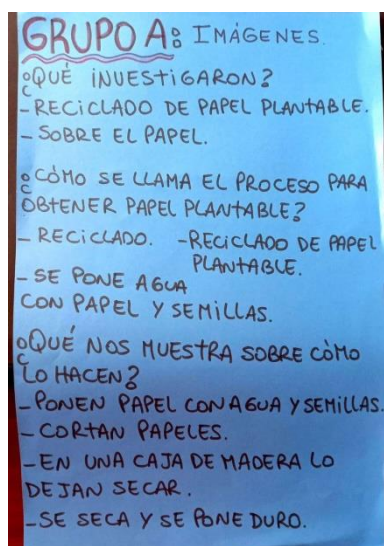 GRUPO A: IMÁGENES.
¿QUÉ INVESTIGARON?
- RECICLADO DE PAPEL PLANTABLE.
- SOBRE EL PAPEL.
¿CÓMO SE LLAMA EL PROCESO PARA
OBTENER PAPEL PLANTABLE?
- RECICLADO. - RECICLADO DE PAPEL
PLANTABLE.
- SE PONE AGUA
CON PAPEL Y SEMILLAS.
¿QUÉ NOS MUESTRA SOBRE CÒMO
LO HACEN?
- PONEN PAPEL CON AGUA Y SEMILLAS.
- CORTAN PAPELES.
- EN UNA CAJA DE MADERA LO
DEJAN SECAR.
- SE SECA Y SE PONE DURO.